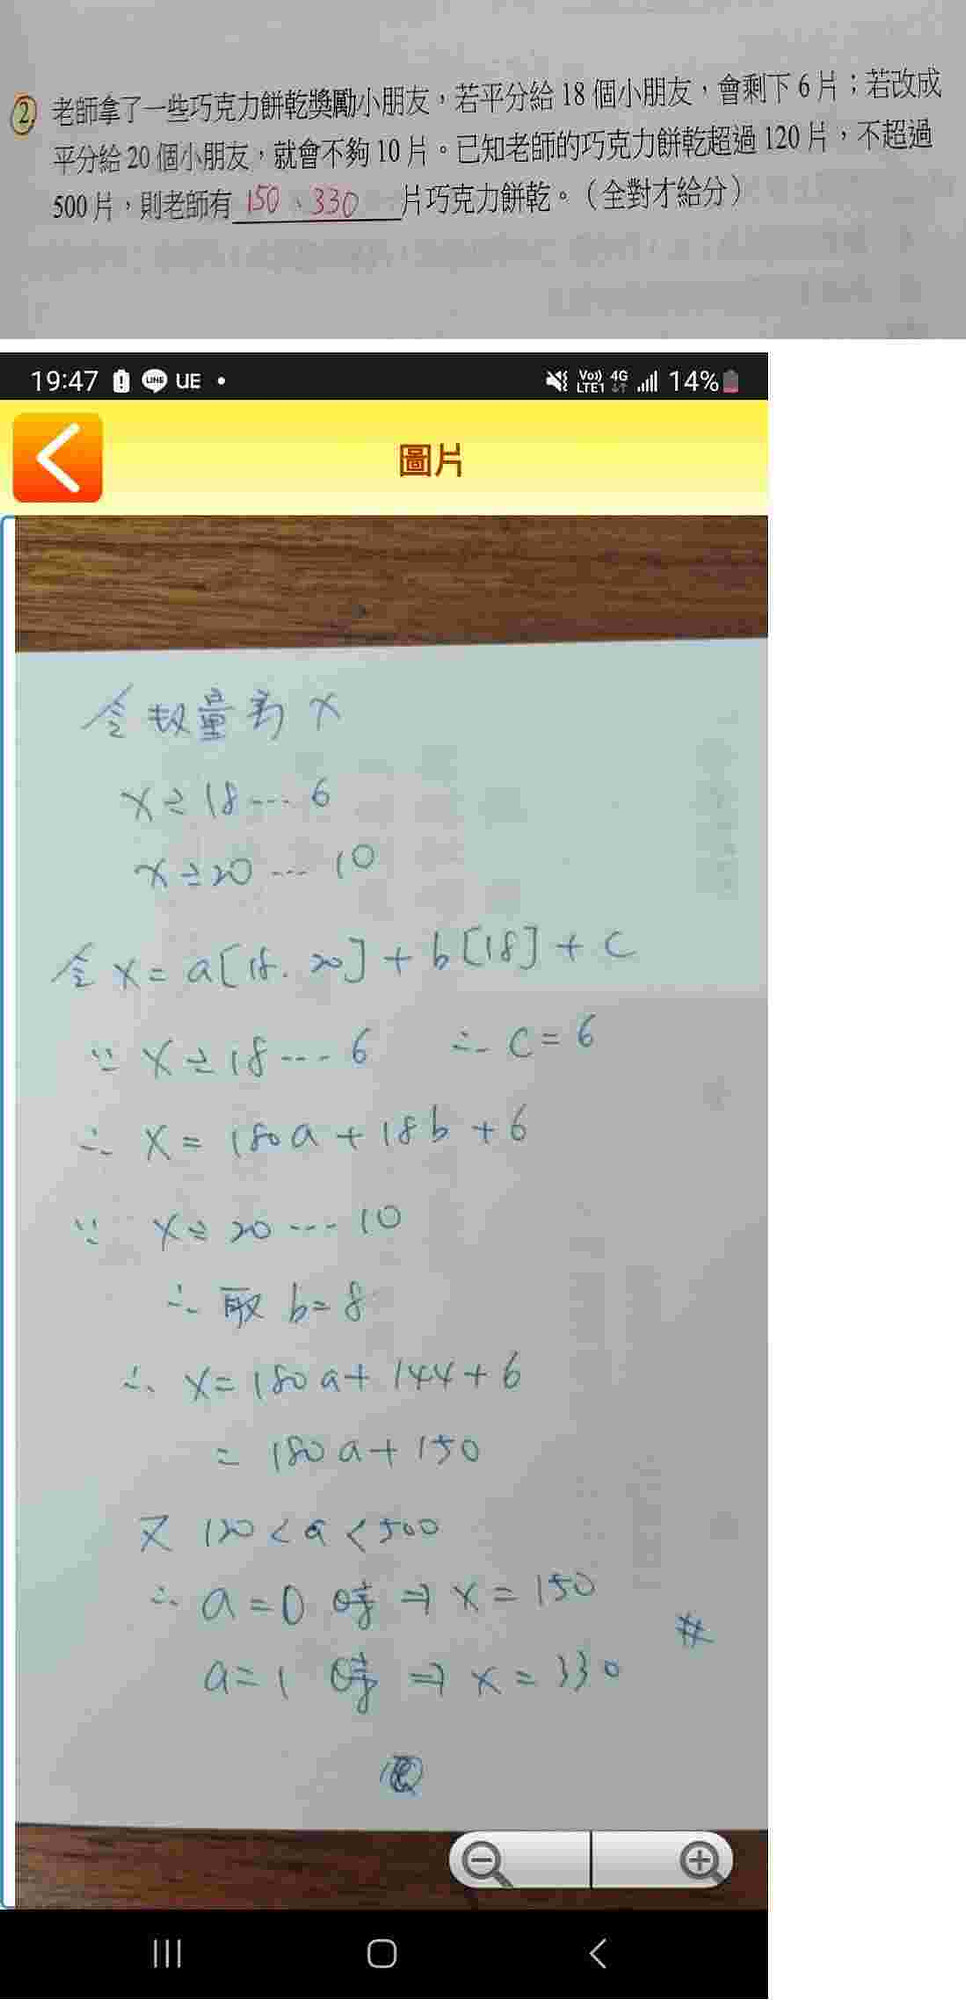 2. 老師拿了一些巧克力餅乾獎勵小朋友，若平分給 18 個小朋友，會剩下 6 片；若改成
平分給 20 個小朋友，就會不夠 10 片。已知老師的巧克力餅乾超過 120 片，不超過
500 片，則老師有 150、330 片巧克力餅乾。（全對才給分）
19:47 LINE UE • Vo)) LTE1 4G 14%
圖片
令数量為 x
x ÷ 18 … 6
x ÷ 20 … 10
令 x = a[18. 20] + b[18] + c
∵ x ÷ 18 … 6 ∴ c = 6
∴ x = 180a + 18b + 6
∵ x ÷ 20 … 10
∴ 取 b = 8
∴ x = 180a + 144 + 6
= 180a + 150
又 120 < a < 500
∴ a = 0 時 ⇒ x = 150
a = 1 時 ⇒ x = 330 #